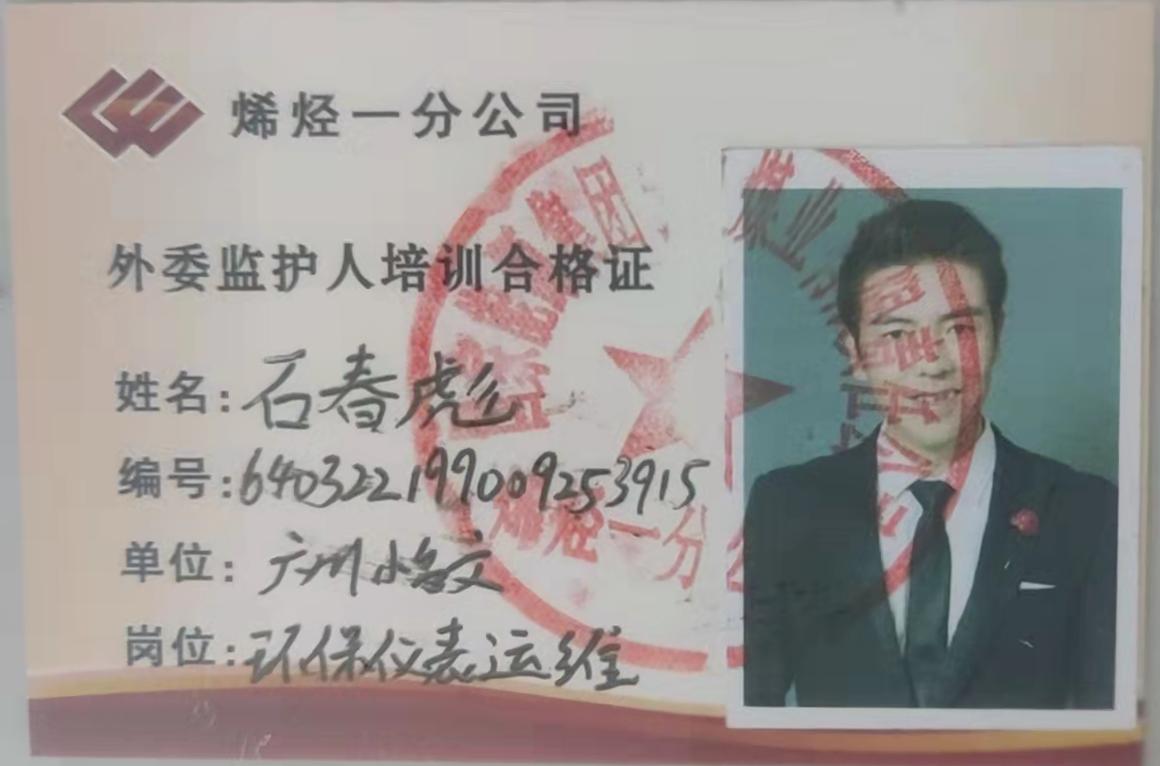 烯烃一分公司
外委监护人培训合格证
姓名:石春彪
编号:640322199009253915
单位:广州
岗位:环保仪表运维